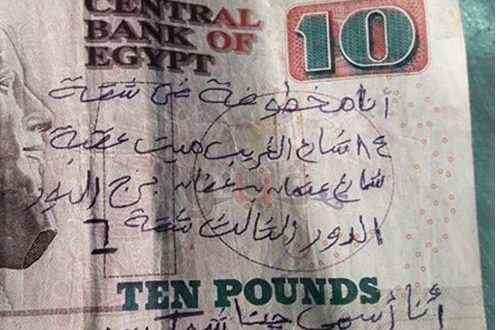 CENTRAL
BANK OF
EGYPT
10
أنا مخطوفة في شقة
٨٤ شارع الغريب ميت عقبة
شارع عثمان بن عفان برج الدور
الدور التالت شقة ٦
TEN POUNDS
أنا أسمي